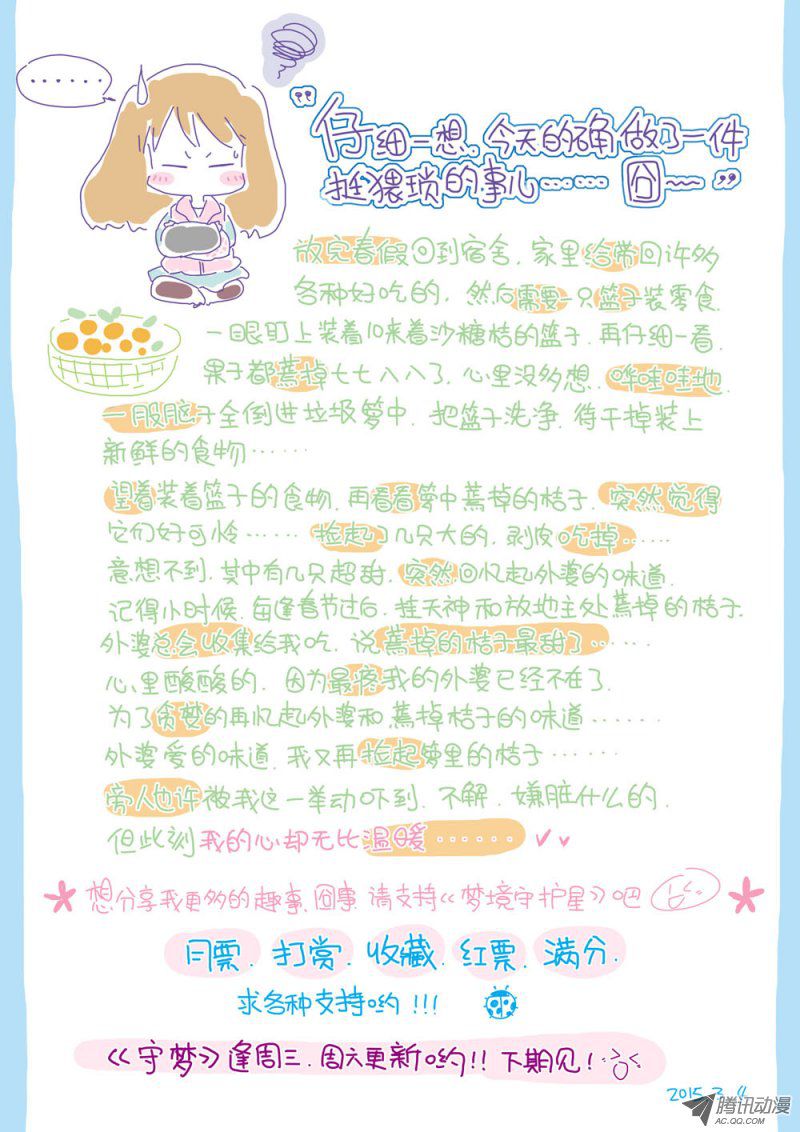 ……
“仔细一想、今天的确做了一件
挺猥琐的事儿…… 囧~”
放完春假回到宿舍，家里给带回许多
各种好吃的，然后需要一只篮子装零食.
一眼盯上装着10来着沙糖桔的篮子，再仔细一看，
果子都蔫掉七七八八了，心里没多想，哗哇哇地
一股脑子全倒进垃圾箩中，把篮子洗净，待干掉装上
新鲜的食物……
望着装着篮子的食物，再看看箩中蔫掉的桔子，突然觉得
它们好可怜…… 捡起了几只大的，剥皮吃掉……
意想不到，其中有几只超甜，突然回忆起外婆的味道.
记得小时候，每逢春节过后，挂天神和放地主处蔫掉的桔子.
外婆总会收集给我吃，说蔫掉的桔子最甜了……
心里酸酸的，因为最疼我的外婆已经不在了.
为了贪婪的再忆起外婆和蔫掉桔子的味道……
外婆爱的味道，我又再捡起箩里的桔子……
旁人也许被我这一举动吓到、不解、嫌脏什么的，
但此刻我的心却无比温暖……
想分享我更多的趣事、囧事 请支持《梦境守护星》吧
月票、打赏、收藏、红票、满分、
求各种支持哟!!!
《守梦》逢周三、周六更新哟!! 下期见!
2015.3.4
腾讯动漫
AC.QQ.COM